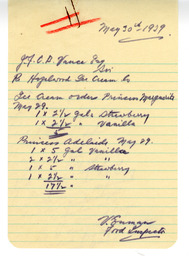 May 30th 1939
J.F.C.B. Vance Esq
Dr
To Hazelwood Ice Cream Co
Ice Cream orders Princess Marguerite
May 29.
1 x 2½ Gals Strawberry
1 x 2½ " Vanilla
Princess Adelaide May 29.
1 x 5 Gal Vanilla
2 x 2½ " "
1 x 5 " Strawberry
1 x 2½ " "
17½ "
Food Inspector